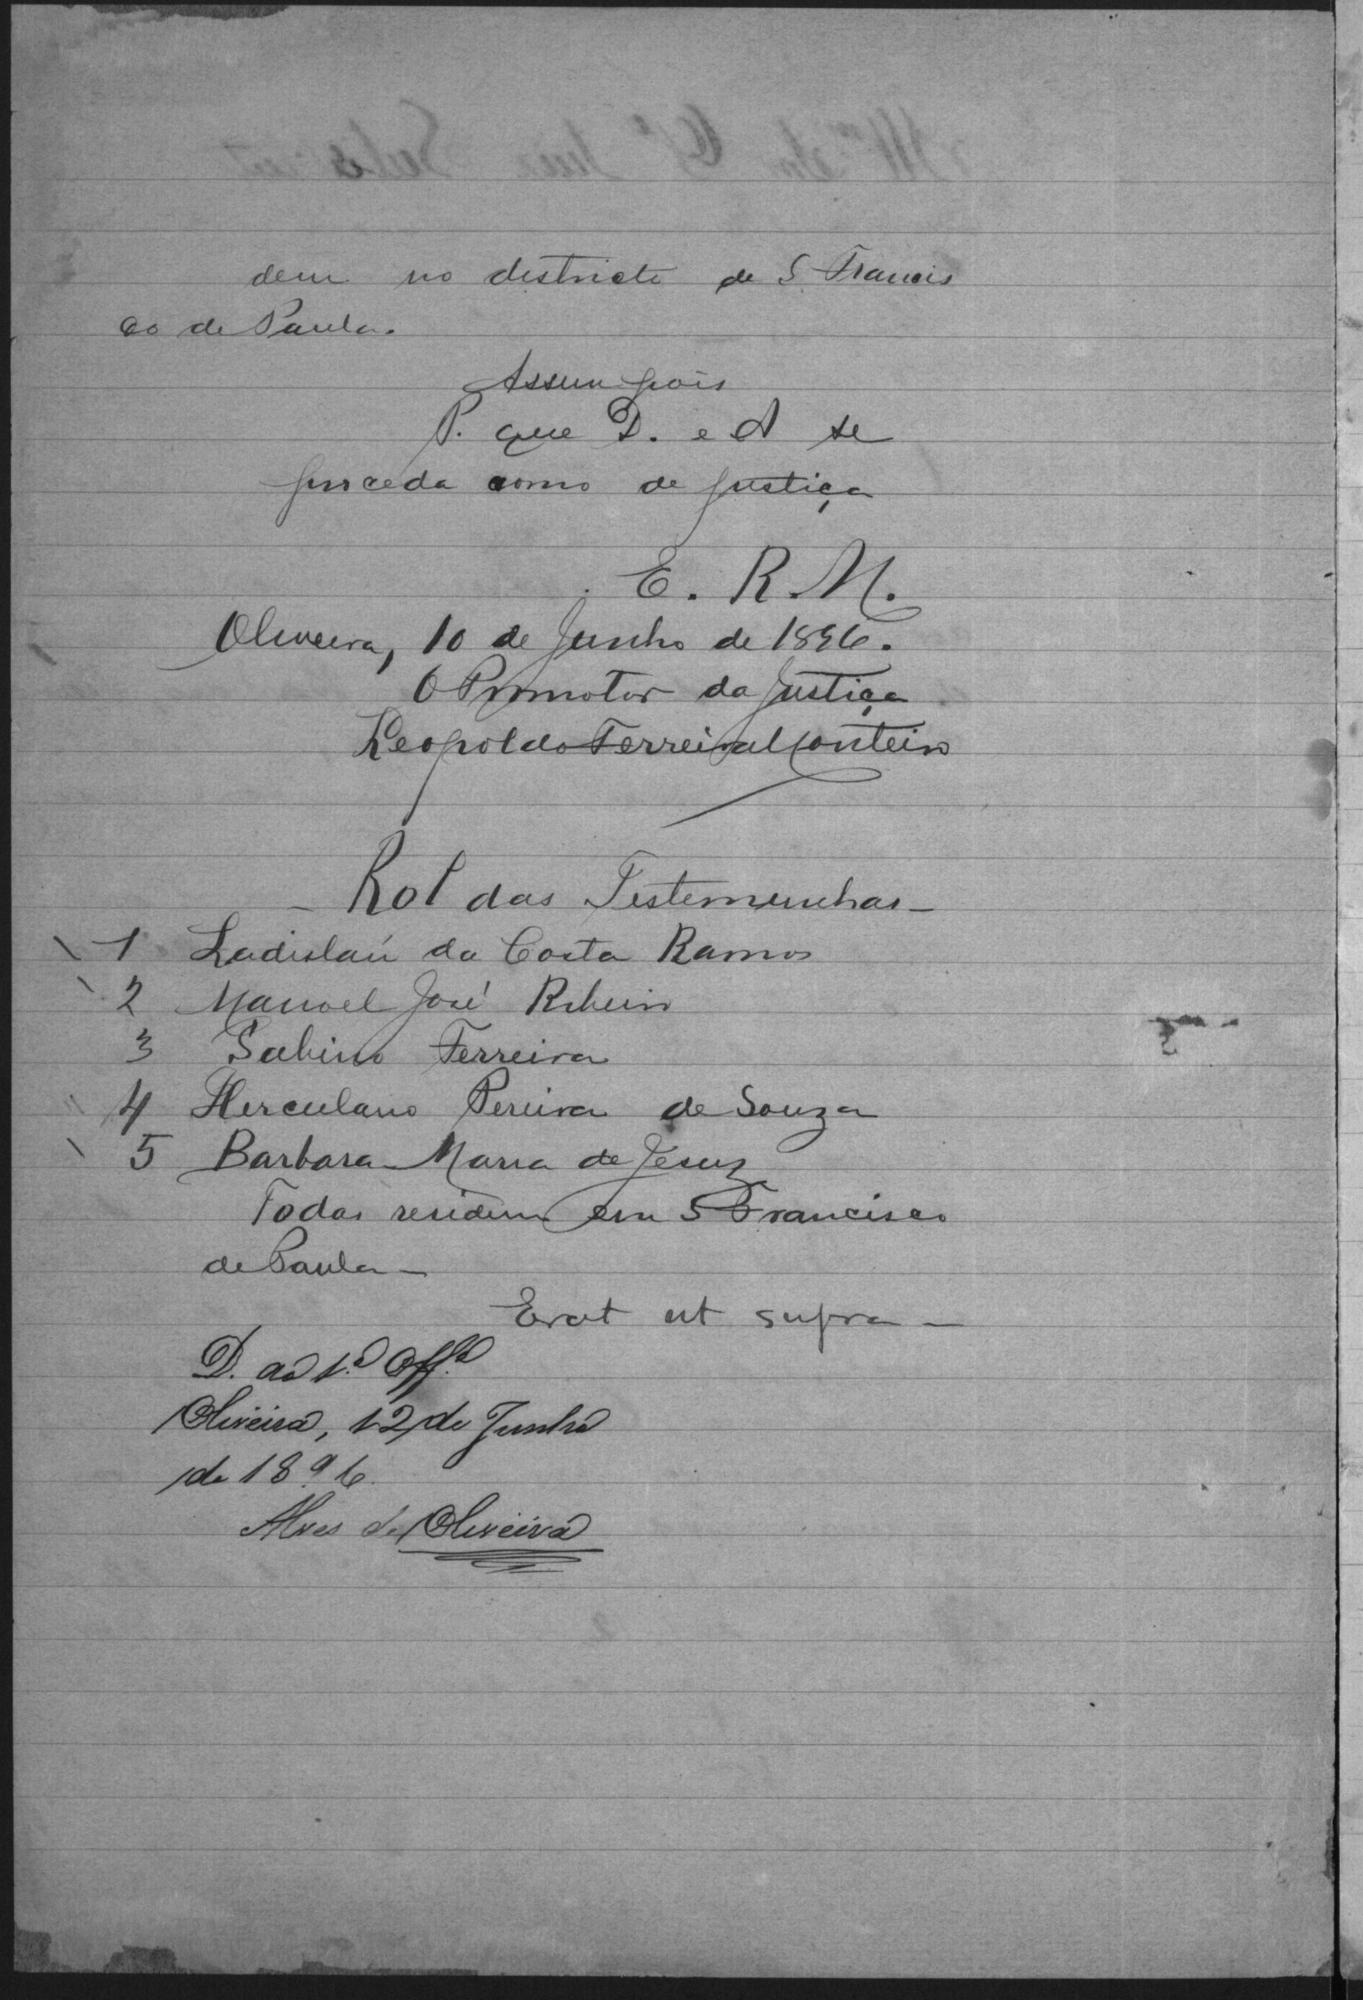 dem no districto de S. Francis
co de Paula.
Assim pois
P. que D. e A se
proceda como de justiça
E. R. M.
Oliveira, 10 de Junho de 1896.
O Promotor da Justiça
Leopoldo Ferreira Monteiro
- Rol das Testemunhas -
1 Ladislau da Costa Ramos
2 Manoel José Ribeiro
3 Sabino Ferreira
4 Herculano Pereira de Souza
5 Barbara Maria de Jesuz
Todas residem em S Francisco
de Paula -
Erat ut supra -
D. ao 1.º Off.º
Oliveira, 12 de Junho
de 1896.
Alves de Oliveira